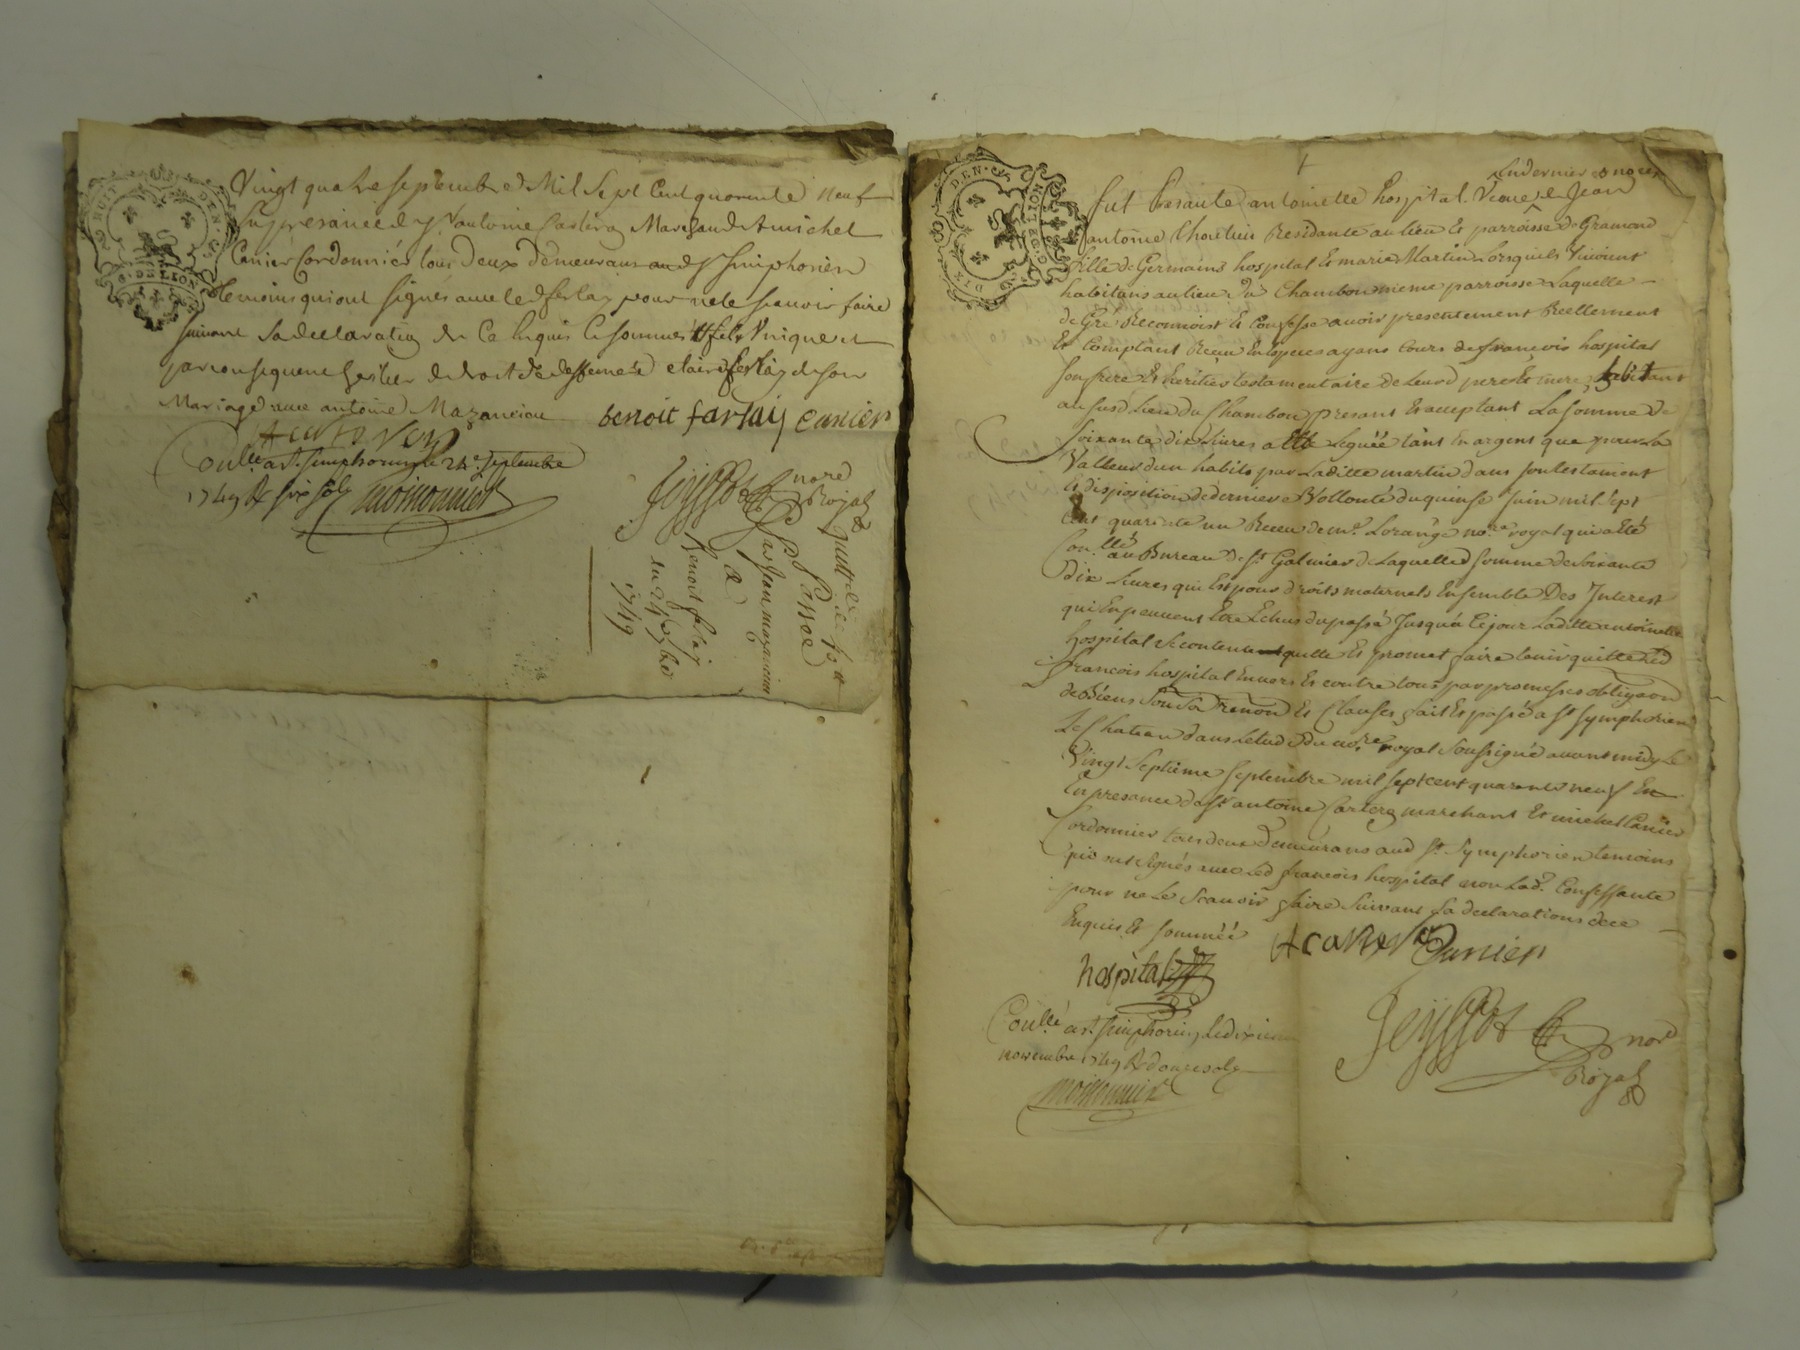 Vingt quatre septembre Mil Sept Cent quarente neuf
En presance de Sr antoine Carteron Marchand & michel
Canier Cordonnier tous deux demeurans aud St Simphorien
temoins qui ont signés avec led ferlay pour ne le scavoir faire
suivant sa declaration de Ce Enquis Et sommée
par consequent de droit claire ferlay de son
Mariage avec antoine Mazancieu benoit ferlay Canier
ACarteron
Coullé a St simphorien le 24e septembre
1749 R six sols moissonnier
Jeyssot nore
Royal
quittance
Passée
Par Jean mazancieu
a
Benoit ferlay
du 24e 7bre
1749
GEN. DE LION
fut Presante antoinette hospital Veuve de Jean
antoine Residante au lieu Et parroisse de Gramond
fille de Germains hospital Et marie Martin Lorsquils Vivoient
habitans au lieu du Chambon meme parroisse Laquelle
de Gré Reconnoist Et Confesse avoir presentement Reellement
Et Comptant Receu En Especes ayans Cours de francois hospital
son frere Et heritier testamentaire de Leurd pere Et mere habitant
au susd Lieu du Chambon presant Et acceptant La somme de
soixante dix Livres a Elle Leguée tant En argent que pour La
Valleur dun habits par Laditte martin dans son testament
Et disposition de derniere Vollonté du quinse Juin mil sept
Cent quarente un Receu de me Lorange nore royal qui a Eté
Coullé au Bureau de St Galmier de Laquelle somme de soixante
dix Livres qui Est pour droits maternels Ensemble Des Interest
qui En peuvent Etre Echus du passé Jusqua Ce jour Laditte antoinette
hospital se contente quitte Et promet faire tenir quitte Led
francois hospital Envers Et contre tous par promesses obligaon
de Biens Et Clauses fait Et passé a St symphorien
Le Chateau dans Letude du nore royal soussigné avant midy Le
Vingt Septieme septembre mil sept cent quarente neuf En
En presance de Sr antoine Carteron marchant Et michel Canier
Cordonnier tous deux Demeurans aud St Symphorien temoins
qui ont signés avec Led francois hospital non Lad. Confessante
pour ne Le Scavoir faire Suivant sa declarations de ce
Enquis Et sommée
ACarteron Canier
hospital
Coullé a St simphorien Le dixieme
novembre 1749 R douze sols
moissonnier
Jeyssot nore
Royal